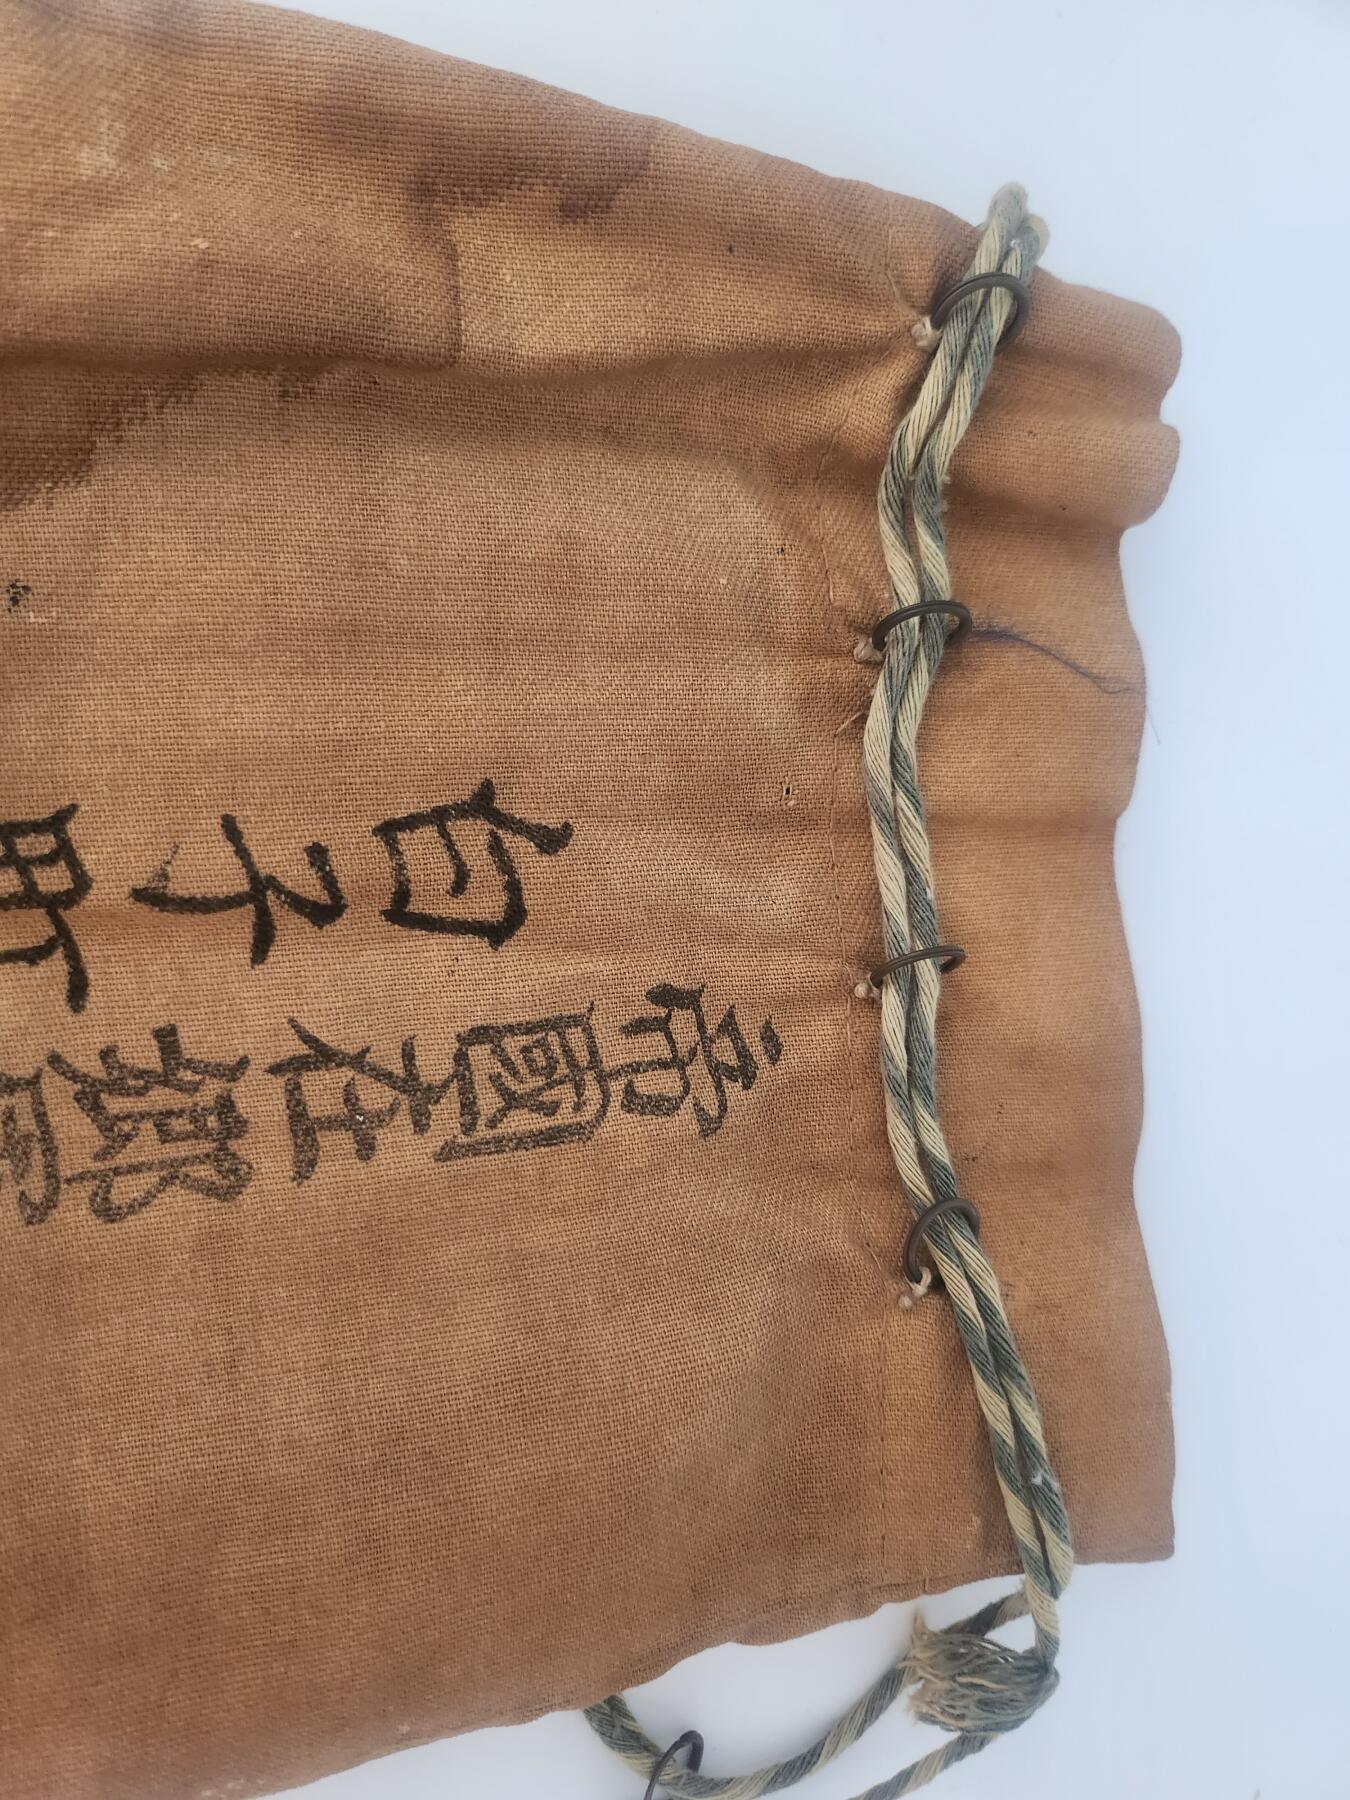 帝國在郷
白子町